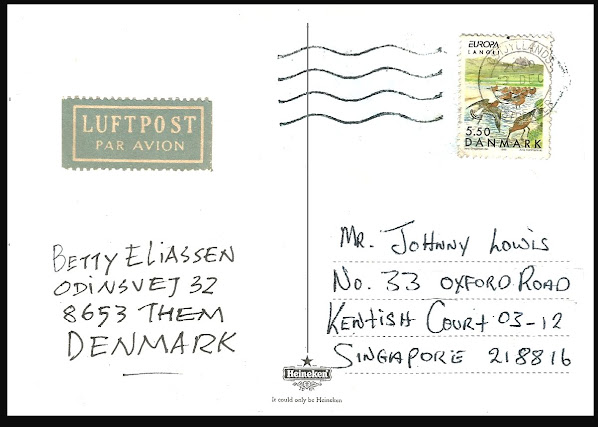 LUFTPOST
PAR AVION
EUROPA
LANGLI
5.50
DANMARK
BETTY ELIASSEN
ODINSVEJ 32
8653 THEM
DENMARK
MR. JOHNNY LOWIS
No. 33 OXFORD ROAD
KENTISH COURT 03-12
SINGAPORE 218816
Heineken
It could only be Heineken